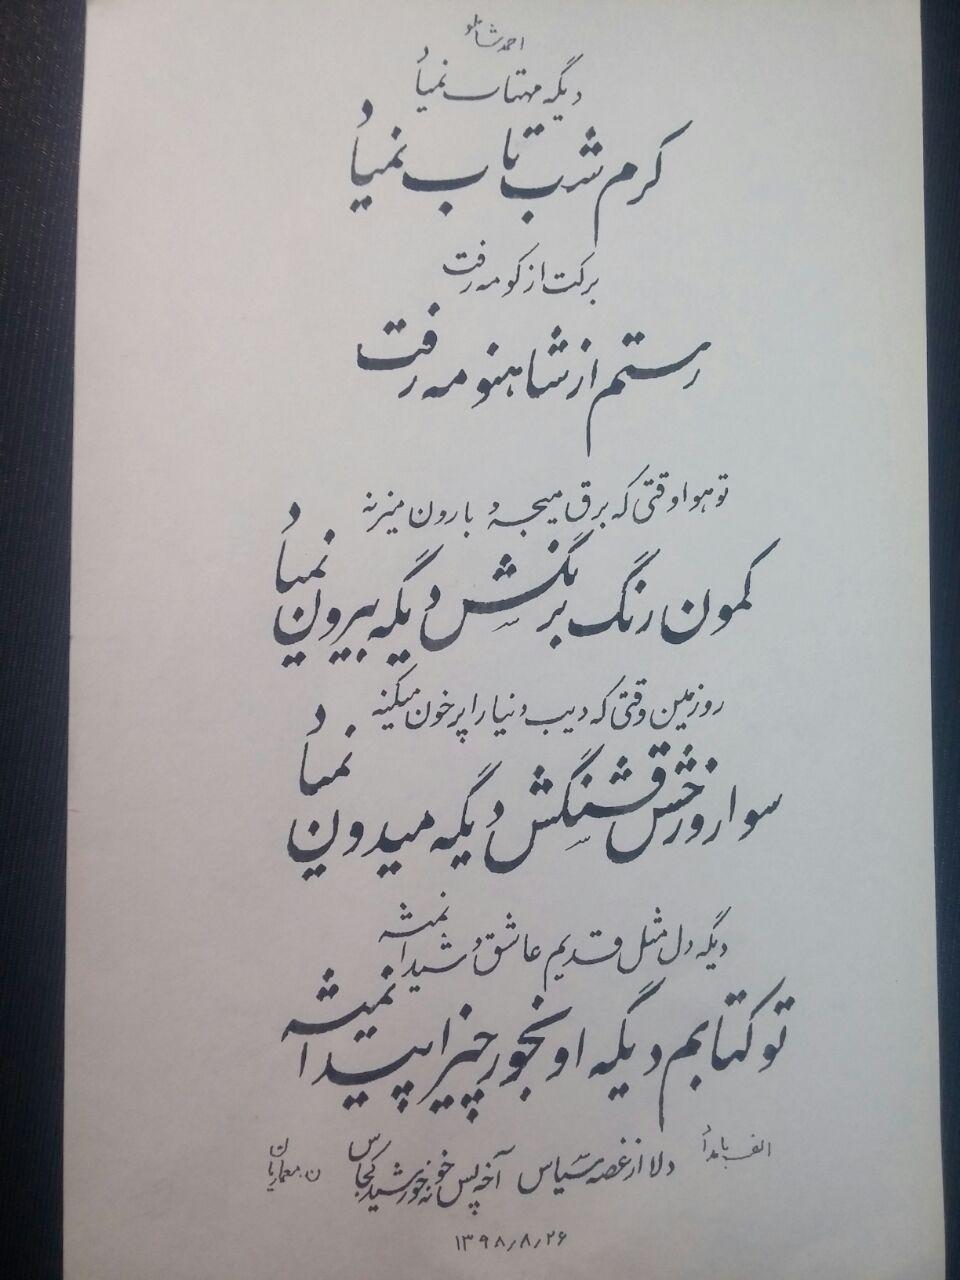 احمد شاملو
دیگه مهتاب نمیاد
کرم شب تاب نمیاد
برکت از کومه رفت
رستم از شاهنومه رفت
تو هوا وقتی که برق میجه و بارون میزنه
کمون رنگ برنگش دیگه بیرون نمیاد
رو زمین وقتی که دیب دنیا را پر خون میکنه
سوار رخش قشنگش دیگه میدون نمیاد
دیگه دل مثل قدیم عاشق و شیدا نمیشه
تو کتابم دیگه اونجور چیزا پیدا نمیشه
الف بامداد
دلا از غصه سیاس آخه پس خونه خورشید کجاس
ن. معماریان
۱۳۹۸٫۸٫۲۶